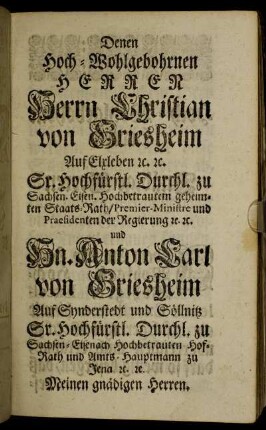 Denen
Hoch-Wohlgebohrnen
HERREN
Herrn Christian
von Griesheim
Auf Elxleben ꝛc. ꝛc.
Sr. Hochfürstl. Durchl. zu
Sachsen-Eisen. Hochbetrautem geheim-
ten Staats-Rath/Premier-Ministre und
Præsidenten der Regierung ꝛc. ꝛc.
und
Hn. Anton Carl
von Griesheim
Auf Synderstedt und Söllnitz
Sr. Hochfürstl. Durchl. zu
Sachsen-Eisenach Hochbetrauten Hof-
Rath und Amts-Hauptmann zu
Jena ꝛc. ꝛc.
Meinen gnädigen Herren.